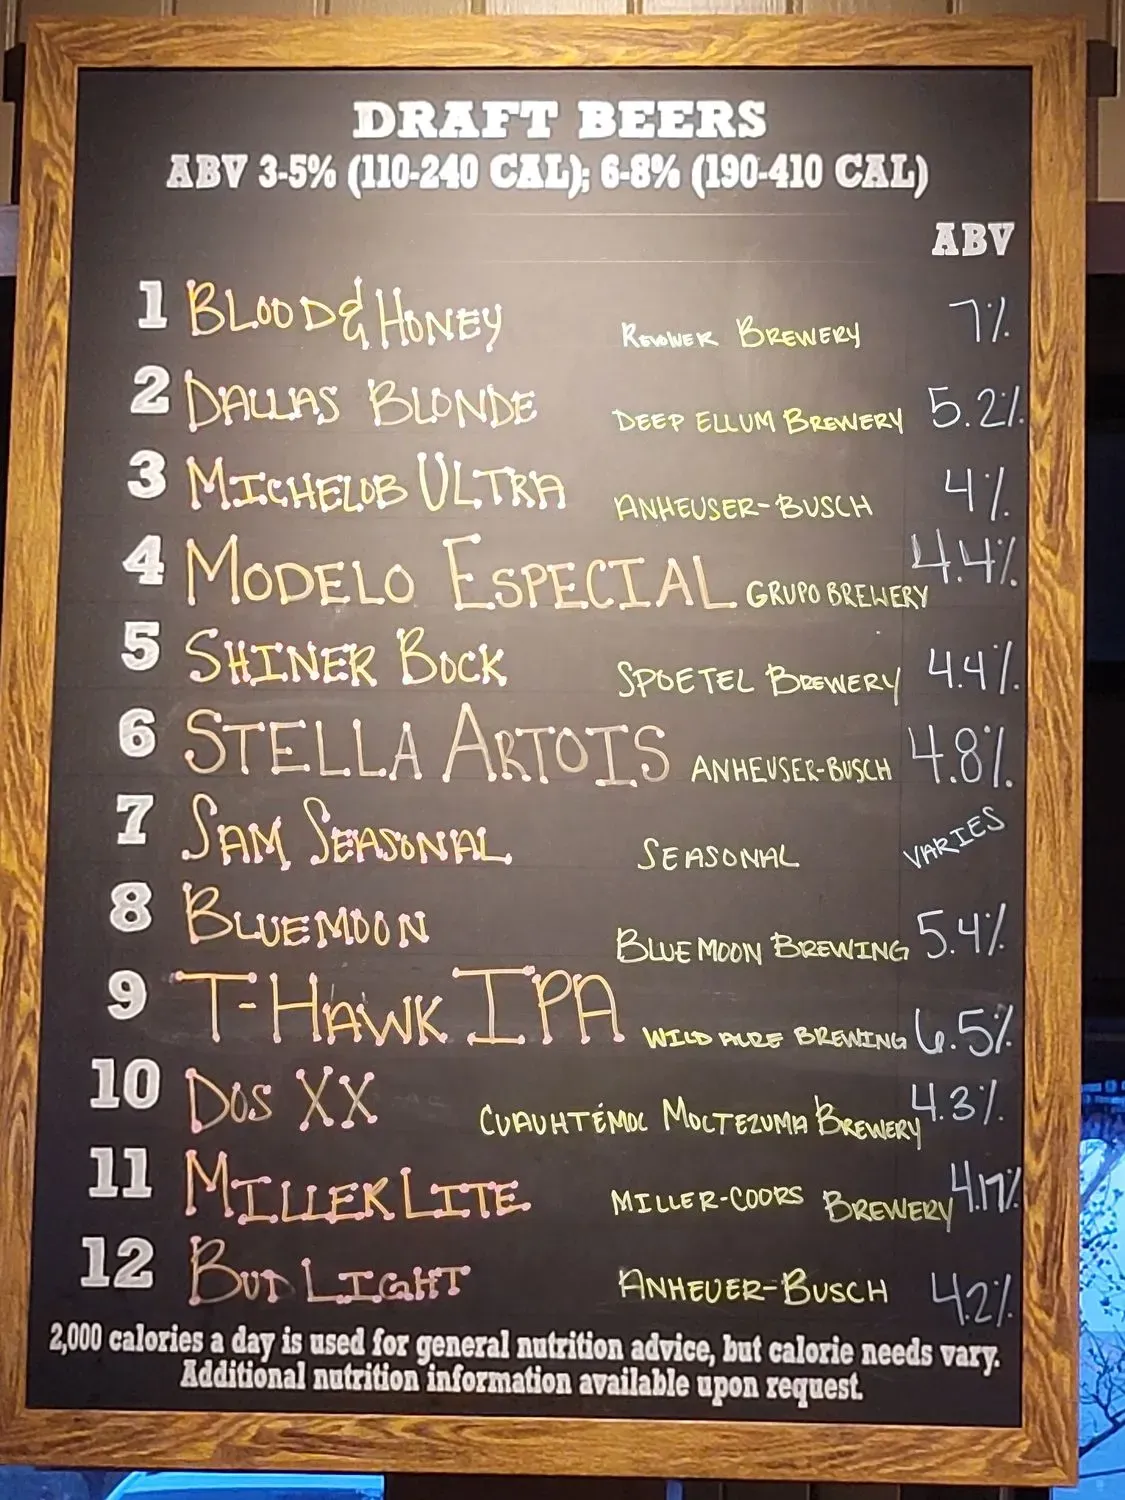 DRAFT BEERS
ABV 3-5% (110-240 CAL); 6-8% (190-410 CAL)
ABV
1 BLOOD & HONEY REVOLVER BREWERY 7%
2 DALLAS BLONDE DEEP ELLUM BREWERY 5.2%
3 MICHELOB ULTRA ANHEUSER-BUSCH 4%
4 MODELO ESPECIAL GRUPO BREWERY 4.4%
5 SHINER BOCK SPOETEL BREWERY 4.4%
6 STELLA ARTOIS ANHEUSER-BUSCH 4.8%
7 SAM SEASONAL SEASONAL VARIES
8 BLUEMOON BLUE MOON BREWING 5.4%
9 T-HAWK IPA WILD ACRE BREWING 6.5%
10 DOS XX CUAUHTÉMOC MOCTEZUMA BREWERY 4.3%
11 MILLER LITE MILLER-COORS BREWERY 4.17%
12 BUD LIGHT ANHEUER-BUSCH 4.2%
2,000 calories a day is used for general nutrition advice, but calorie needs vary.
Additional nutrition information available upon request.